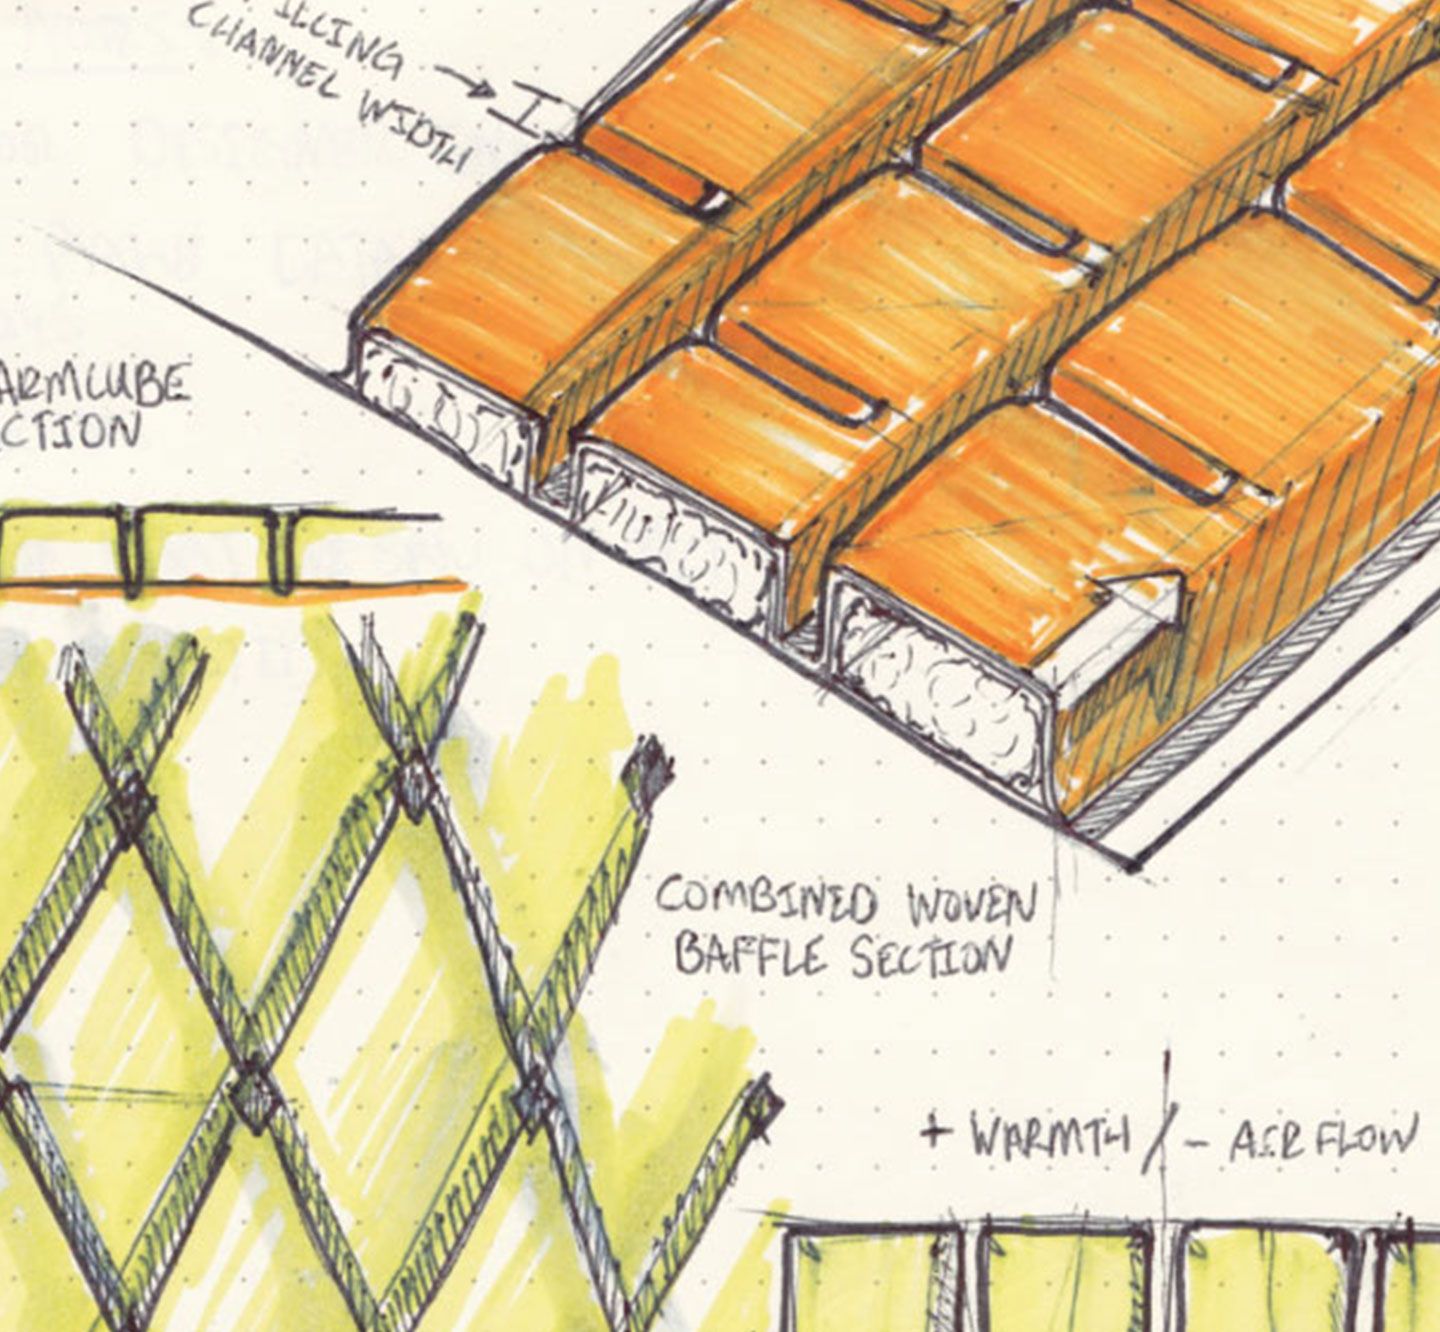 CHANNEL WIDTH
ARMCUBE
CTION
COMBINED WOVEN
BAFFLE SECTION
+ WARMTH / - AIR FLOW